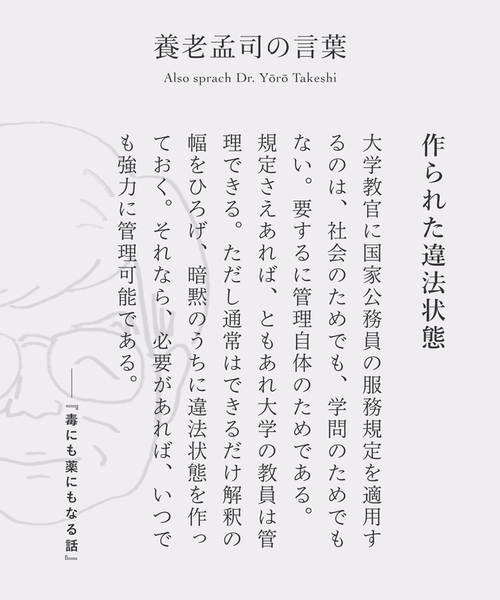 養老孟司の言葉
Also sprach Dr. Yōrō Takeshi
作られた違法状態
大学教官に国家公務員の服務規定を適用す
るのは、社会のためでも、学問のためでも
ない。要するに管理自体のためである。
規定さえあれば、ともあれ大学の教員は管
理できる。ただし通常はできるだけ解釈の
幅をひろげ、暗黙のうちに違法状態を作っ
ておく。それなら、必要があれば、いつで
も強力に管理可能である。
──『毒にも薬にもなる話』